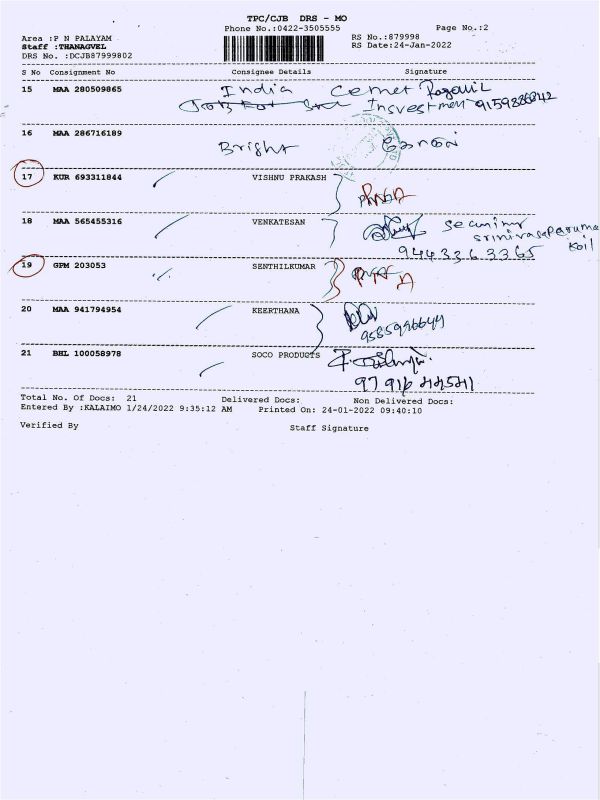 TPC/CJB DRS - MO
Phone No.:0422-3505555 Page No.:2
Area :P N PALAYAM RS No.:879998
Staff :THANAGVEL RS Date:24-Jan-2022
DRS No. :DCJB87999802
S No Consignment No Consignee Details Signature
15 MAA 280509865 India Cemet
Investment
16 MAA 286716189 Bright
17 KUR 693311844 VISHNU PRAKASH
18 MAA 565455316 VENKATESAN
9443363365 Koil
19 GPM 203053 SENTHILKUMAR
20 MAA 941794954 KEERTHANA
21 BHL 100058978 SOCO PRODUCTS
Total No. Of Docs: 21 Delivered Docs: Non Delivered Docs:
Entered By :KALAIMO 1/24/2022 9:35:12 AM Printed On: 24-01-2022 09:40:10
Verified By Staff Signature